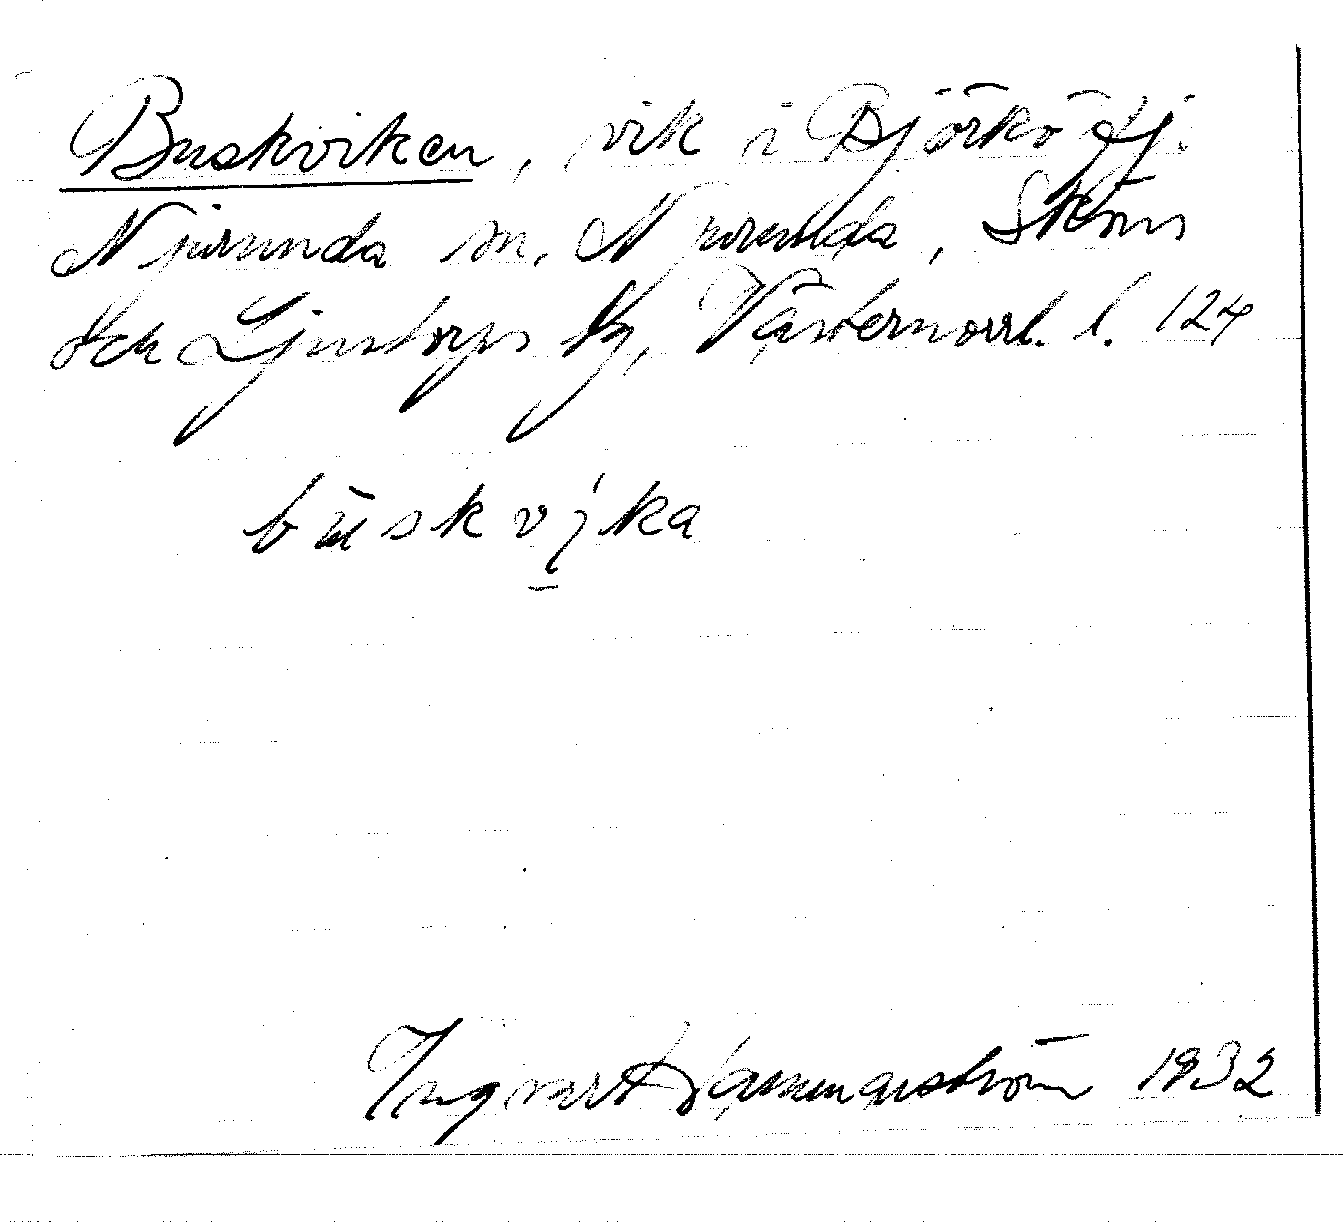 Buskviken, vik i Björkö fj.
Njurunda sn, Njurunda, Sköns
och Ljustorps tg, Västernorrl. l. 124
bùskvi̱ka
Ingvar Hammarström 1932